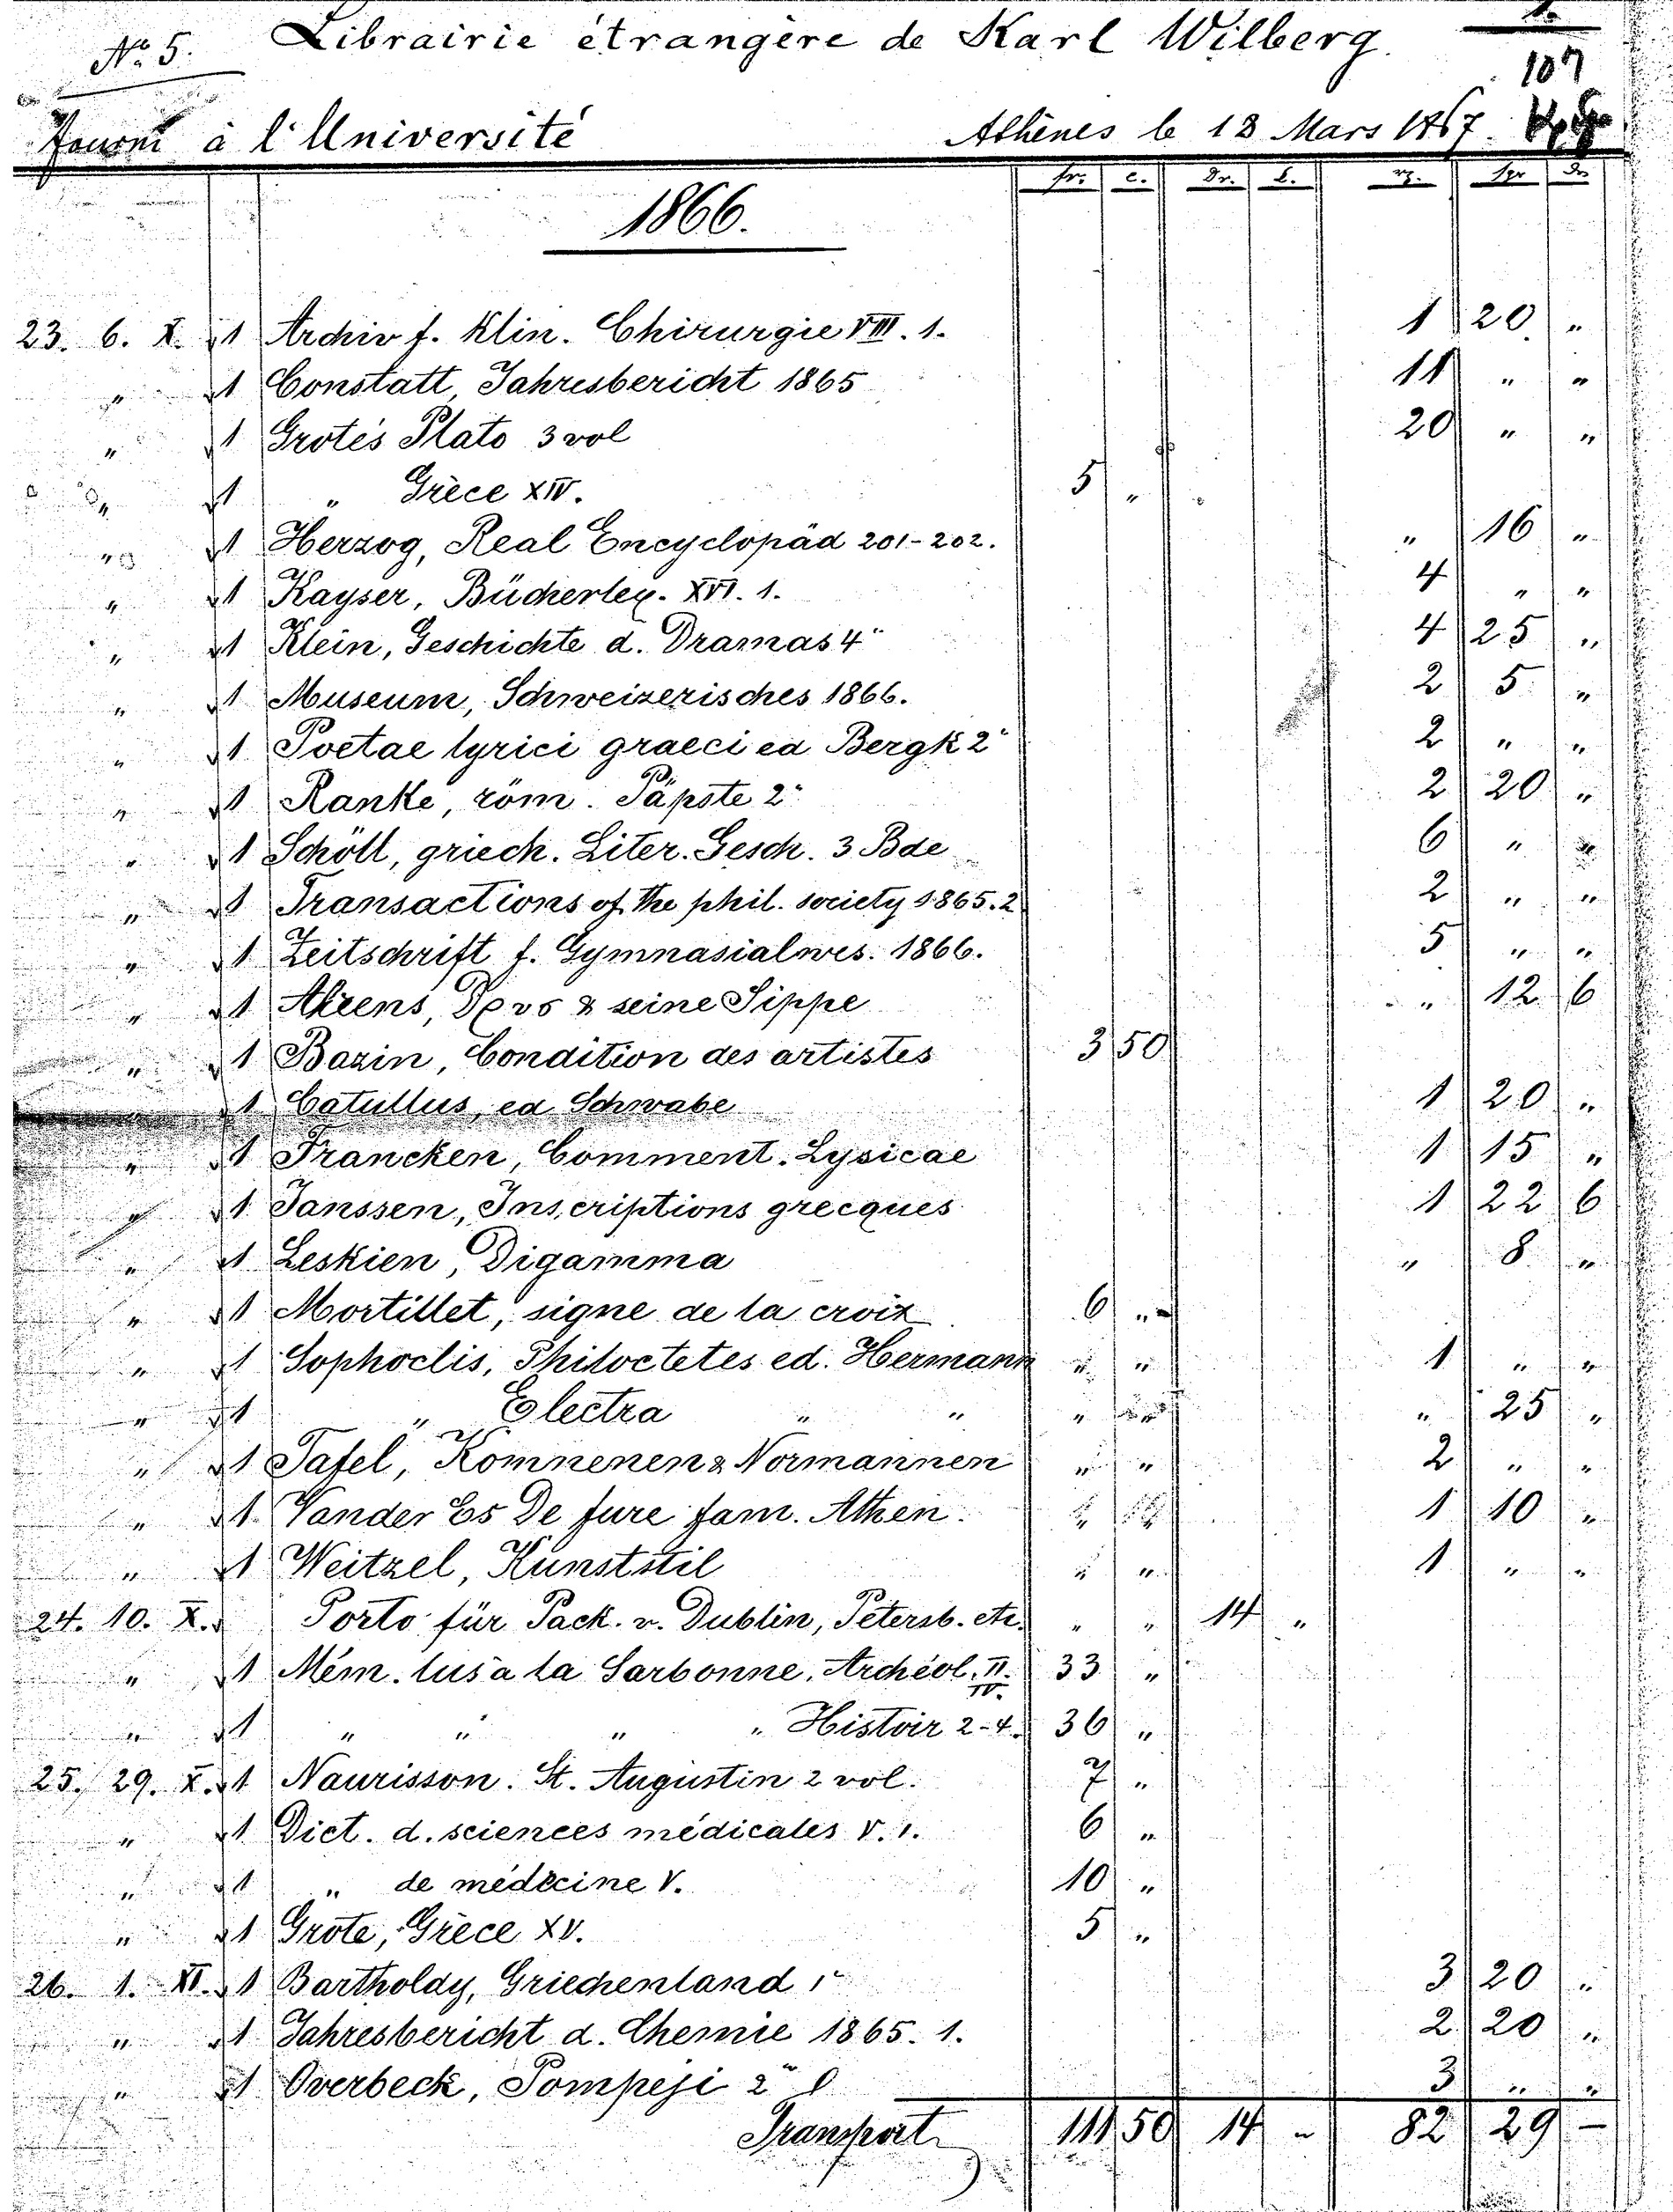 No. 5. Librairie étrangère de Karl Wilberg.
107
Fourni à l'Université Athènes le 18 Mars 1867.
fr. c. Dr. L. rg. Sgr
1866.
23. 6. X. 1 Archiv f. Klin. Chirurgie VIII. 1. 1 20 "
" 1 Constatt, Jahresbericht 1865 11 " "
" 1 Grotes Plato 3 vol 20 " "
" 1 " Grèce XIV. 5 "
" 1 Herzog, Real Encyclopäd 201-202. " 16 "
" 1 Kayser, Bücherlex. XVI. 1. 4 " "
" 1 Klein, Geschichte d. Dramas 4" 4 25 "
" 1 Museum, Schweizerisches 1866. 2 5 "
" 1 Poetae lyrici graeci ed Bergk 2" 2 " "
" 1 Ranke, röm. Päpste 2" 2 20 "
" 1 Schöll, griech. Liter. Gesch. 3 Bde 6 " "
" 1 Transactions of the phil. society 1865. 2 2 " "
" 1 Zeitschrift f. Gymnasialwes. 1866. 5 " "
" 1 Ahrens, & seine Sippe " 12 6
" 1 Bazin, Condition des artistes 3 50
1 Catullus, ed Schwabe 1 20 "
" 1 Francken, Comment. Lysicae 1 15 "
" 1 Janssen, Inscriptions grecques 1 22 6
" 1 Leskien, Digamma " 8 "
" 1 Mortillet, signe de la croix 6 "
" 1 Sophoclis, Philoctetes ed. Hermann " " 1 " "
" 1 " Electra " " " " " 25 "
" 1 Tafel, Komnenen & Normannen " " 2 " "
" 1 Vander Es De jure fam. Athen. " " 1 10 "
" 1 Weitzel, Kunststil " " 1 " "
24. 10. X. Porto für Pack. v. Dublin, Petersb. etc. " " 14 "
" 1 Mém. lus à la Sarbonne, Archéol. II. IV. 33 "
" 1 " " " " Histoir 2-4. 36 "
25. 29. X. 1 Naurisson. St. Augustin 2 vol. 7 "
" 1 Dict. d. sciences médicales V. 1. 6 "
" 1 " de médecine V. 10 "
" 1 Grote, Grèce XV. 5 "
26. 1. XI. 1 Bartholdy, Griechenland 1" 3 20 "
" 1 Jahresbericht d. Chemie 1865. 1. 2 20 "
" 1 Overbeck, Pompeji 2" 3 " "
Transport 111 50 14 - 82 29 -